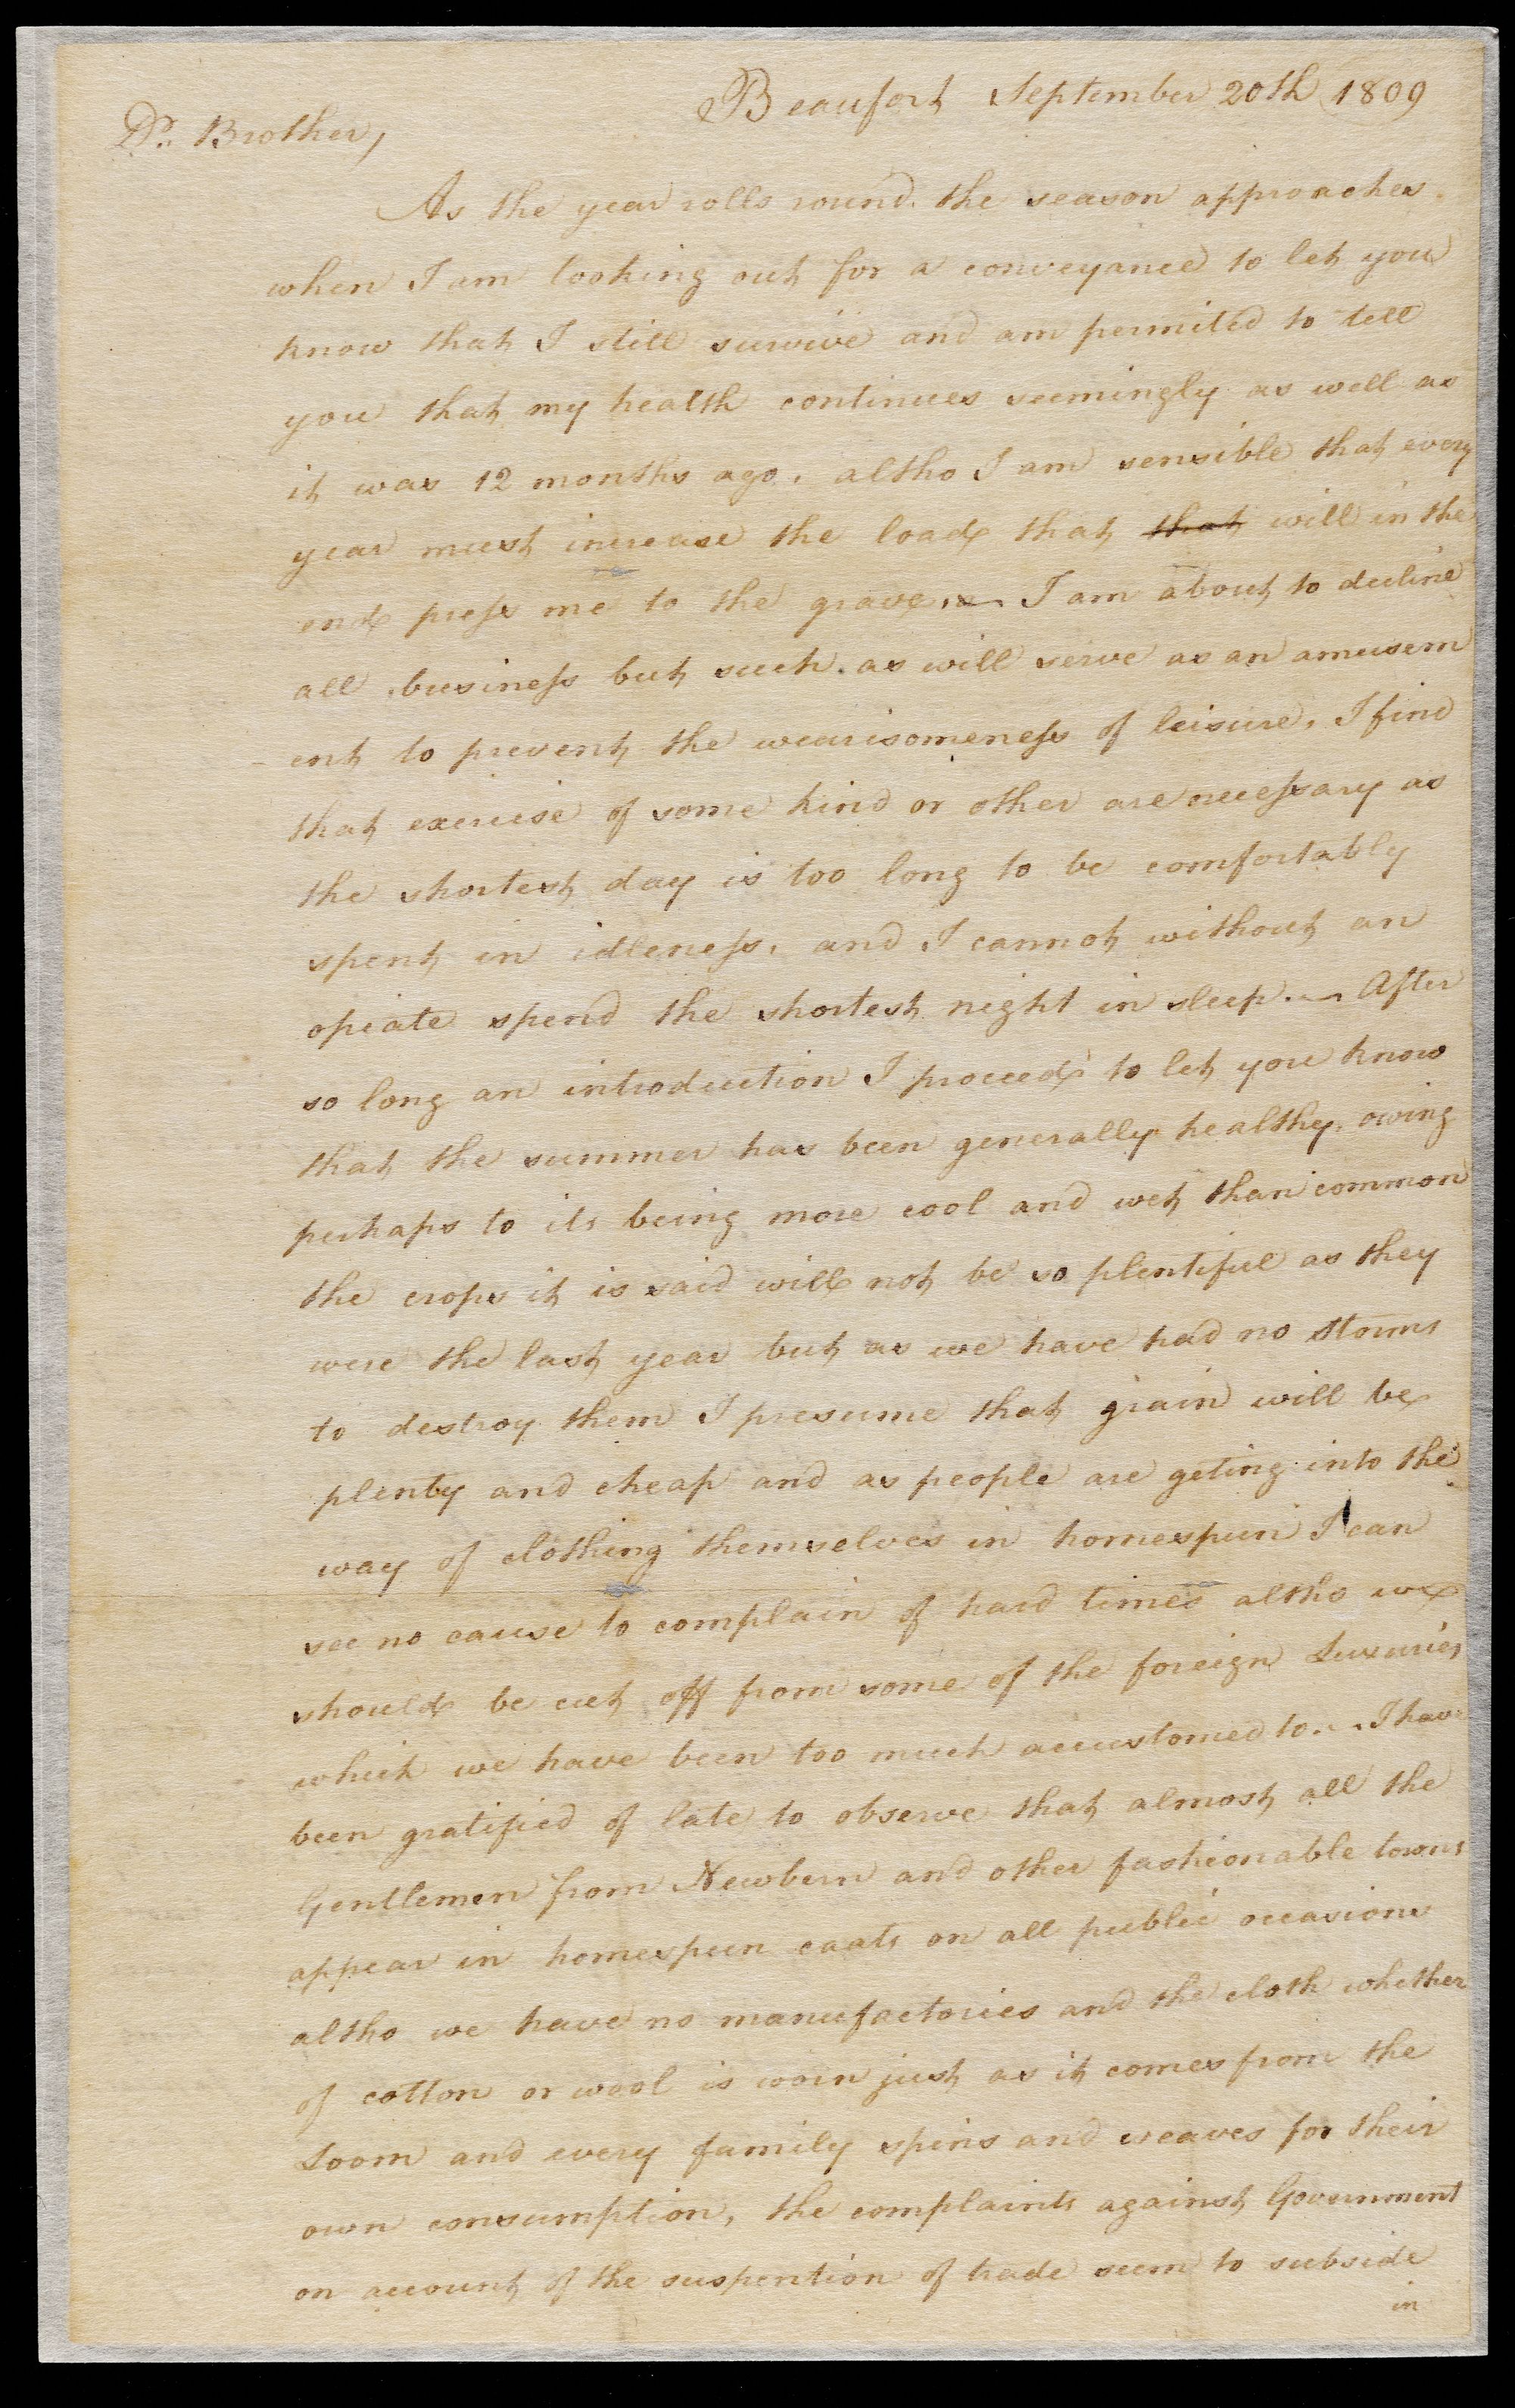 Beaufort September 20th 1809
Dr. Brother,
As the year rolls round. the season approaches
when I am looking out for a conveyance to let you
know that I still survive and am permited to tell
you that my health continues seemingly as well as
it was 12 months ago, altho I am sensible that every
year must increase the load that that will in the
end press me to the grave, I am about to decline
all business but such as will serve as an amusem
ent to prevent the wearisomeness of leisure, I find
that exercise of some kind or other are necessary as
the shortest day is too long to be comfortably
spent in idleness, and I cannot without an
opiate spend the shortest night in sleep. — After
so long an introduction I proceed to let you know
that the summer has been generally healthy, owing
perhaps to its being more cool and wet than common
the crops it is said will not be so plentiful as they
were the last year but as we have had no storms
to destroy them I presume that grain will be
plenty and cheap and as people are geting into the
way of clothing themselves in homespun I can
see no cause to complain of hard times altho we
should be cut off from some of the foreign Luxuries
which we have been too much accustomed to. . I have
been gratified of late to observe that almost all the
Gentlemen from Newbern and other fashionable towns
appear in homespun coats on all public occasions
altho we have no manufactories and the cloth whether
of cotton or wool is worn just as it comes from the
Loom and every family spins and weaves for their
own consumption, the complaints against Government
on account of the suspention of trade seem to subside
in